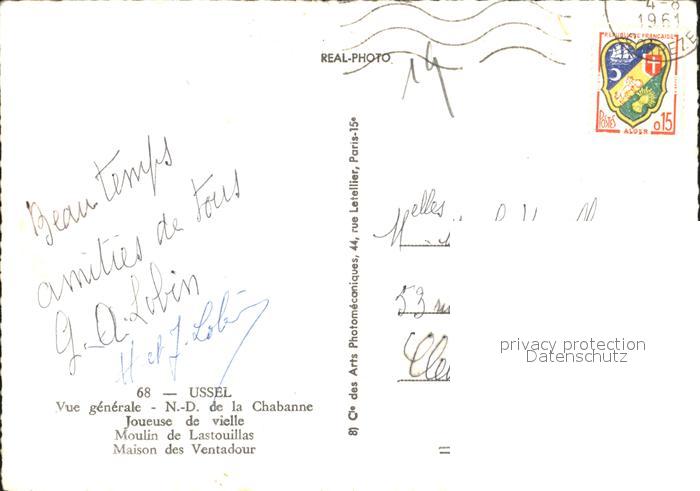 REAL-PHOTO
14
4-8
1961
REPUBLIQUE FRANÇAISE
POSTES
0,15
ALGER
Beau temps
amitiés de tous
G. A. Lobin
H et J. Lobin
68 — USSEL
Vue générale - N.-D. de la Chabanne
Joueuse de vielle
Moulin de Lastouillas
Maison des Ventadour
8) Cie des Arts Photomécaniques, 44, rue Letellier, Paris-15e
Melles
53
privacy protection
Datenschutz